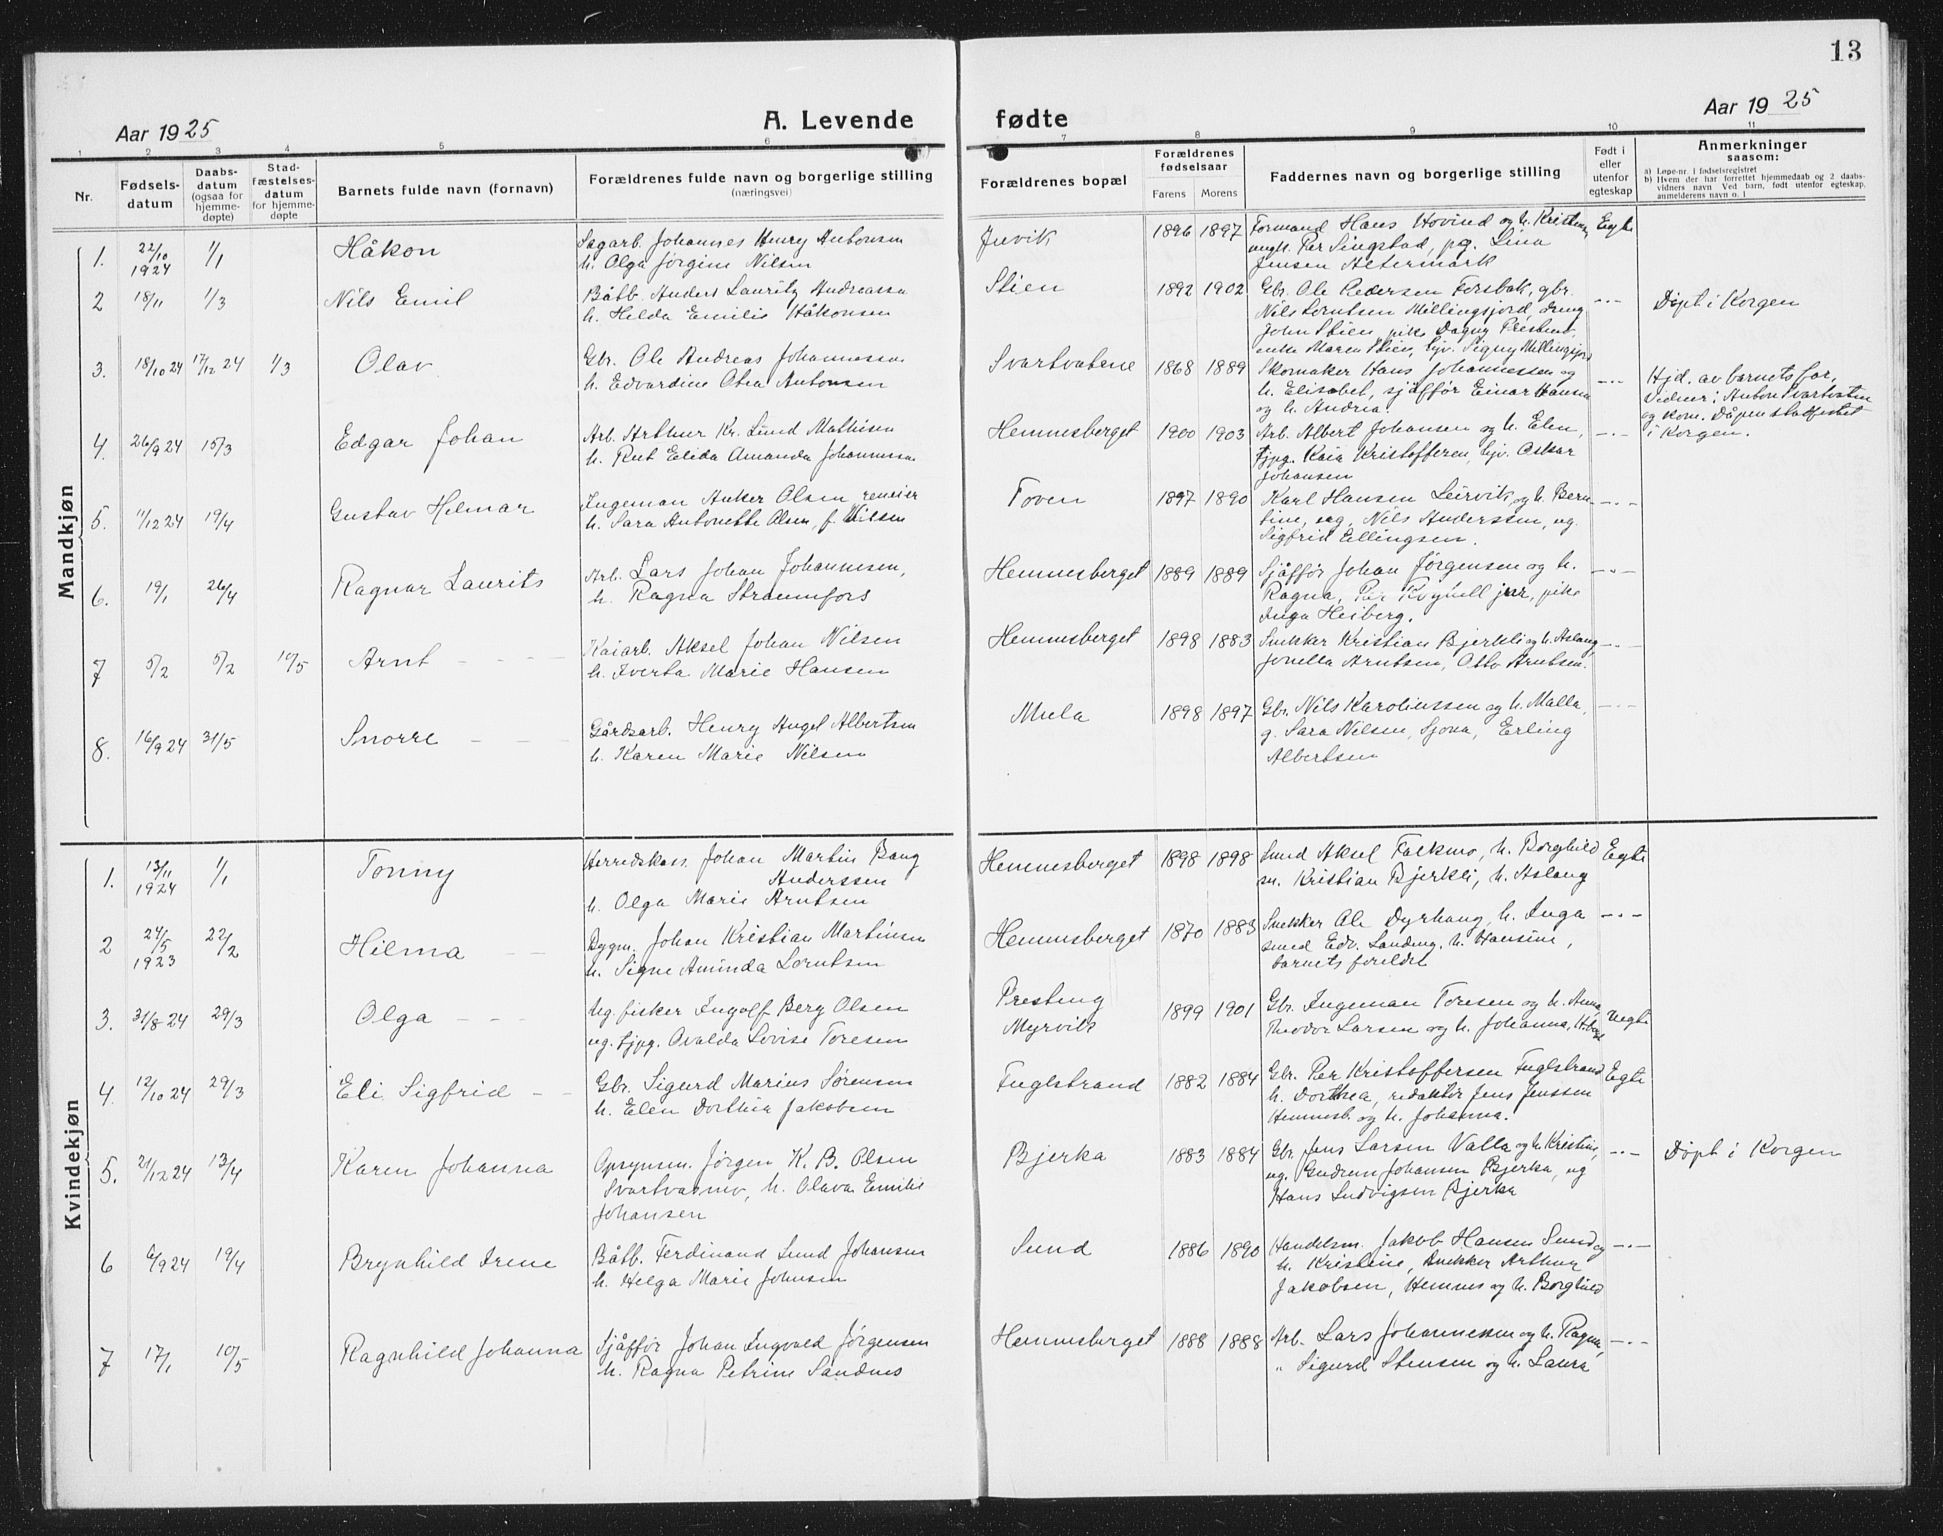 13
Aar 1925
A. Levende
fødte
Aar 1925
1 2 3 4 5 6 7 8 9 10 11
Nr.
Fødsels-
datum
Daabs-
datum
(ogsaa for
hjemme-
døpte)
Stad-
fæstelses-
datum
for hjemme-
døpte
Barnets fulde navn (fornavn)
Forældrenes fulde navn og borgerlige stilling
(næringsvei)
Forældrenes bopæl
Forældrenes
fødselsaar
Farens Morens
Faddernes navn og borgerlige stilling
Født i
eller
utenfor
egteskap
Anmerkninger
saasom:
a) Løpe-nr. i fødselsregistret
b) Hvem der har forrettet hjemmedaab og 2 daabs-
vidners navn Ved barn, født utenfor egteskap,
anmelderens navn o. l
Mandkjøn
1. 22/10 1924 1/1 Håkon
Sagarb. Johannes Henry Antonsen
h. Olga Jørgine Nilsen
Juvik 1896 1897
Formand Hans Hovind og h. Kristine,
ungk. Per Singstad, pg. Lina
Jensen Altermark
Egte
2 18/11 1/3 Nils Emil
Båtb. Anders Lauritz Andreassen
h. Helda Emilie Håkonsen
Stien 1892 1902
Gbr. Ole Pedersen Forsbak, gbr.
Nils Lorntsen Millingsjord, dreng
John Stien, pike Dagny
enke Maren Stien, hjv. Signy
-"-
Døpt i Korgen
3. 18/10 24 17/12 24 1/3 Olav
Gbr. Ole Andreas Johannessen
h. Edvardine Otea Antonsen
Svartvatne 1868 1889
Skomaker Hans Johannessen og
h. Elisabet, sjåffør Einar Hansen
og h. Andrea.
-"-
Hjd. av barnets far.
Vidner: Anton Svartvatn
og kone. Dåpen stadfestet
i Korgen.
4. 26/9 24 15/3 Edgar Johan
Arb. Arthur Kr. Lund Mathisen
h. Rut Elida Amanda Johannessen
Hemnesberget 1900 1903
Arb. Albert Johansen og h. Elen,
tjpg. Kaia Kristoffersen, hjv. Oskar
Johansen
-"-
5. 11/12 24 19/4 Gustav Hilmar
Ingeman Anker Olsen
h. Sara Antonette Olsen, f. Nilsen
Toven 1897 1890
Karl Hansen Leirvik og h. Bern-
tine, ug. Nils Anderssen, ug.
Sigfrid Ellingsen.
-"-
6. 19/1 26/4 Ragnar Laurits
Arb. Lars Johan Johannesen,
h. Ragna Straumfors
Hemnesberget 1889 1889
Sjåffør Johan Jørgensen og h.
Ragna, Per jnr, pike
Inga Heiberg.
-"-
7 5/2 5/2 10/5 Arnt
Kaiarb. Aksel Johan Nilsen
h. Iverta Marie Hansen
Hemnesberget 1898 1883
Snekker Kristian Bjerkli og h. Aslaug,
Jonella Arntsen, Otto Arntsen.
-"-
8. 16/9 24 31/5 Snorre
Gårdsarb. Henry Angel Albertsen
h. Karen Marie Nilsen
Mula 1898 1897
Gbr. Nils Karolinssen og h. Malla,
g. Sara Nilsen, Sjona, Erling
Albertsen
-"-
Kvindekjøn
1. 13/11 1924 1/1 Tonny
Herredskass. Johan Martin Bang
Anderssen
h. Olga Marie Arntsen
Hemnesberget 1898 1898
Smed Aksel Falkmo, h. Borghild
sn. Kristian Bjerkli, h. Aslaug
Egte
2 24/5 1923 22/2 Hilma
Bygm. Johan Kristian Martinsen
h. Signe Aminda Lorntsen
Hemnesberget 1870 1883
Snekker Ole Dyrhaug, h. Inga
smed Edv. Sanding, h. Hansine,
barnets foreldre
-"-
3. 31/8 24 29/3 Olga
Ug. fisker Ingolf Berg Olsen
ug. tjpg. Ovalda Lovise Toresen
Presteng
Myrvik
1899 1901
Gbr. Ingeman Toresen og h. Anna,
Theodor Larsen og h. Johanna,
Uegte
4. 12/10 24 29/3 Eli Sigfrid
Gbr. Sigurd Marius Sørensen
h. Elen Dorthea Jakobsen
Fuglstrand 1882 1884
Gbr. Per Kristoffersen Fuglstrand
h. Dorthea, redaktør Jens Jenssen
Hemnesb. og h. Johanna.
Egte
5. 21/12 24 13/4 Karen Johanna
Opsynsm. Jørgen K. B. Olsen
Svartvasmo, h. Olava Emilie
Johansen
Bjerka 1883 1884
Gbr. Jens Larsen Valla og h. Kristine,
ug. Gudrun Johansen Bjerka, ug
Hans Ludvigsen Bjerka
-"-
Døpt i Korgen
6 6/9 24 19/4 Brynhild Irene
Båtb. Ferdinand Lund Johansen
h. Helga Marie Johnsen
Sund 1886 1890
Handelsm. Jakob Hansen Sund og
h. Kristine, snekker Arthur
Jakobsen, Hemnes og h. Borghild
-"-
7 17/1 10/5 Ragnhild Johanna
Sjåffør Johan Ingvald Jørgensen
h. Ragna Petrine Sandnes
Hemnesberget 1888 1888
Arb. Lars Johannessen og h. Ragna,
" Sigurd Stensen og h. Laura
-"-